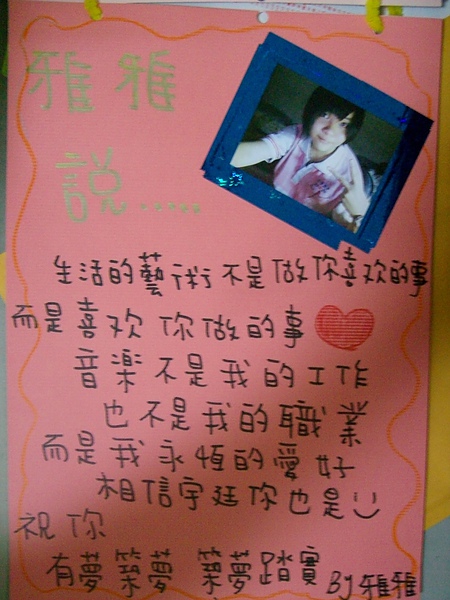 雅雅
説.....
生活的藝術不是做你喜欢的事
而是喜欢你做的事
音楽不是我的工作
也不是我的職業
而是我永恆的愛好
相信宇廷你也是
祝你
有夢築夢 築夢踏實 By雅雅